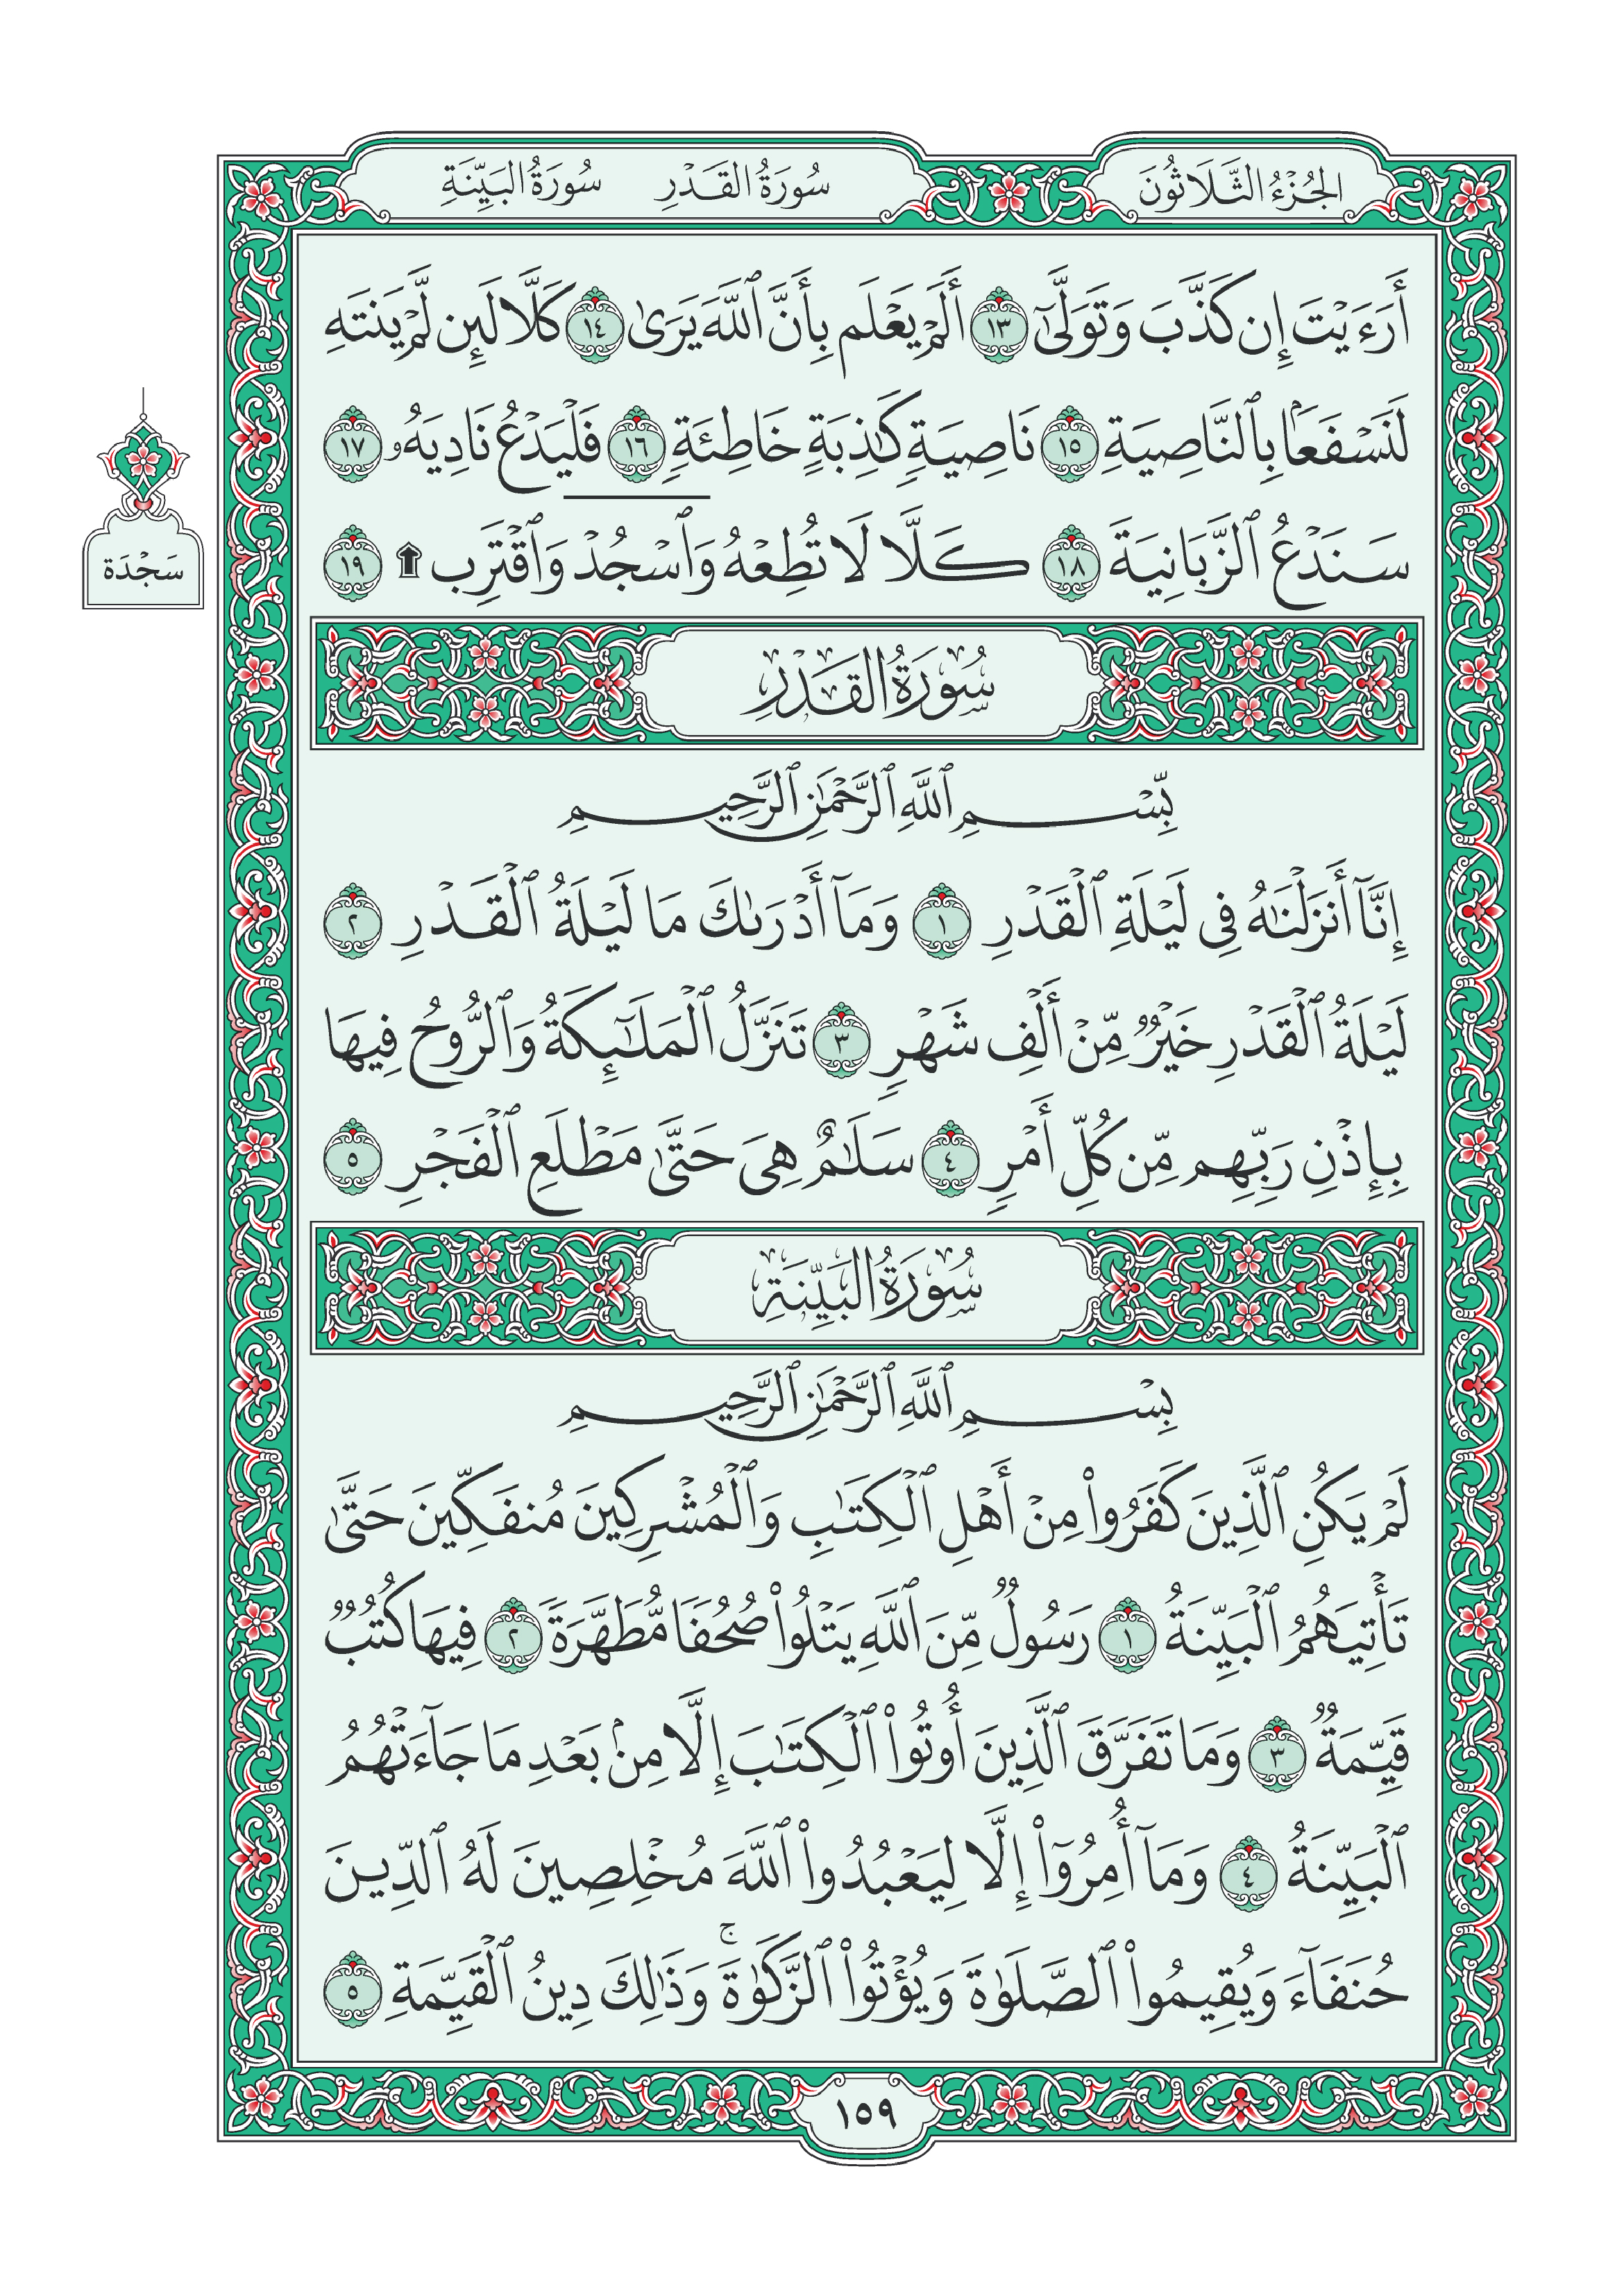 الجُزْءُ الثَّلَاثُونَ سُورَةُ القَدْرِ سُورَةُ البَيِّنَةِ
أَرَءَيْتَ إِن كَذَّبَ وَتَوَلَّىٰٓ ١٣ أَلَمْ يَعْلَم بِأَنَّ ٱللَّهَ يَرَىٰ ١٤ كَلَّا لَئِن لَّمْ يَنتَهِ
لَنَسْفَعَۢا بِٱلنَّاصِيَةِ ١٥ نَاصِيَةٍ كَٰذِبَةٍ خَاطِئَةٍ ١٦ فَلْيَدْعُ نَادِيَهُۥ ١٧
سَنَدْعُ ٱلزَّبَانِيَةَ ١٨ كَلَّا لَا تُطِعْهُ وَٱسْجُدْ وَٱقْتَرِب ۩ ١٩
سَجْدَة
سُورَةُ القَدْرِ
بِّسْمِ ٱللَّهِ ٱلرَّحْمَٰنِ ٱلرَّحِيمِ
إِنَّآ أَنزَلْنَٰهُ فِى لَيْلَةِ ٱلْقَدْرِ ١ وَمَآ أَدْرَىٰكَ مَا لَيْلَةُ ٱلْقَدْرِ ٢
لَيْلَةُ ٱلْقَدْرِ خَيْرٌ مِّنْ أَلْفِ شَهْرٍ ٣ تَنَزَّلُ ٱلْمَلَٰٓئِكَةُ وَٱلرُّوحُ فِيهَا
بِإِذْنِ رَبِّهِم مِّن كُلِّ أَمْرٍ ٤ سَلَٰمٌ هِىَ حَتَّىٰ مَطْلَعِ ٱلْفَجْرِ ٥
سُورَةُ البَيِّنَةِ
بِسْمِ ٱللَّهِ ٱلرَّحْمَٰنِ ٱلرَّحِيمِ
لَمْ يَكُنِ ٱلَّذِينَ كَفَرُوا۟ مِنْ أَهْلِ ٱلْكِتَٰبِ وَٱلْمُشْرِكِينَ مُنفَكِّينَ حَتَّىٰ
تَأْتِيَهُمُ ٱلْبَيِّنَةُ ١ رَسُولٌ مِّنَ ٱللَّهِ يَتْلُوا۟ صُحُفًا مُّطَهَّرَةً ٢ فِيهَا كُتُبٌ
قَيِّمَةٌ ٣ وَمَا تَفَرَّقَ ٱلَّذِينَ أُوتُوا۟ ٱلْكِتَٰبَ إِلَّا مِنۢ بَعْدِ مَا جَآءَتْهُمُ
ٱلْبَيِّنَةُ ٤ وَمَآ أُمِرُوٓا۟ إِلَّا لِيَعْبُدُوا۟ ٱللَّهَ مُخْلِصِينَ لَهُ ٱلدِّينَ
حُنَفَآءَ وَيُقِيمُوا۟ ٱلصَّلَوٰةَ وَيُؤْتُوا۟ ٱلزَّكَوٰةَۚ وَذَٰلِكَ دِينُ ٱلْقَيِّمَةِ ٥
١٥٩